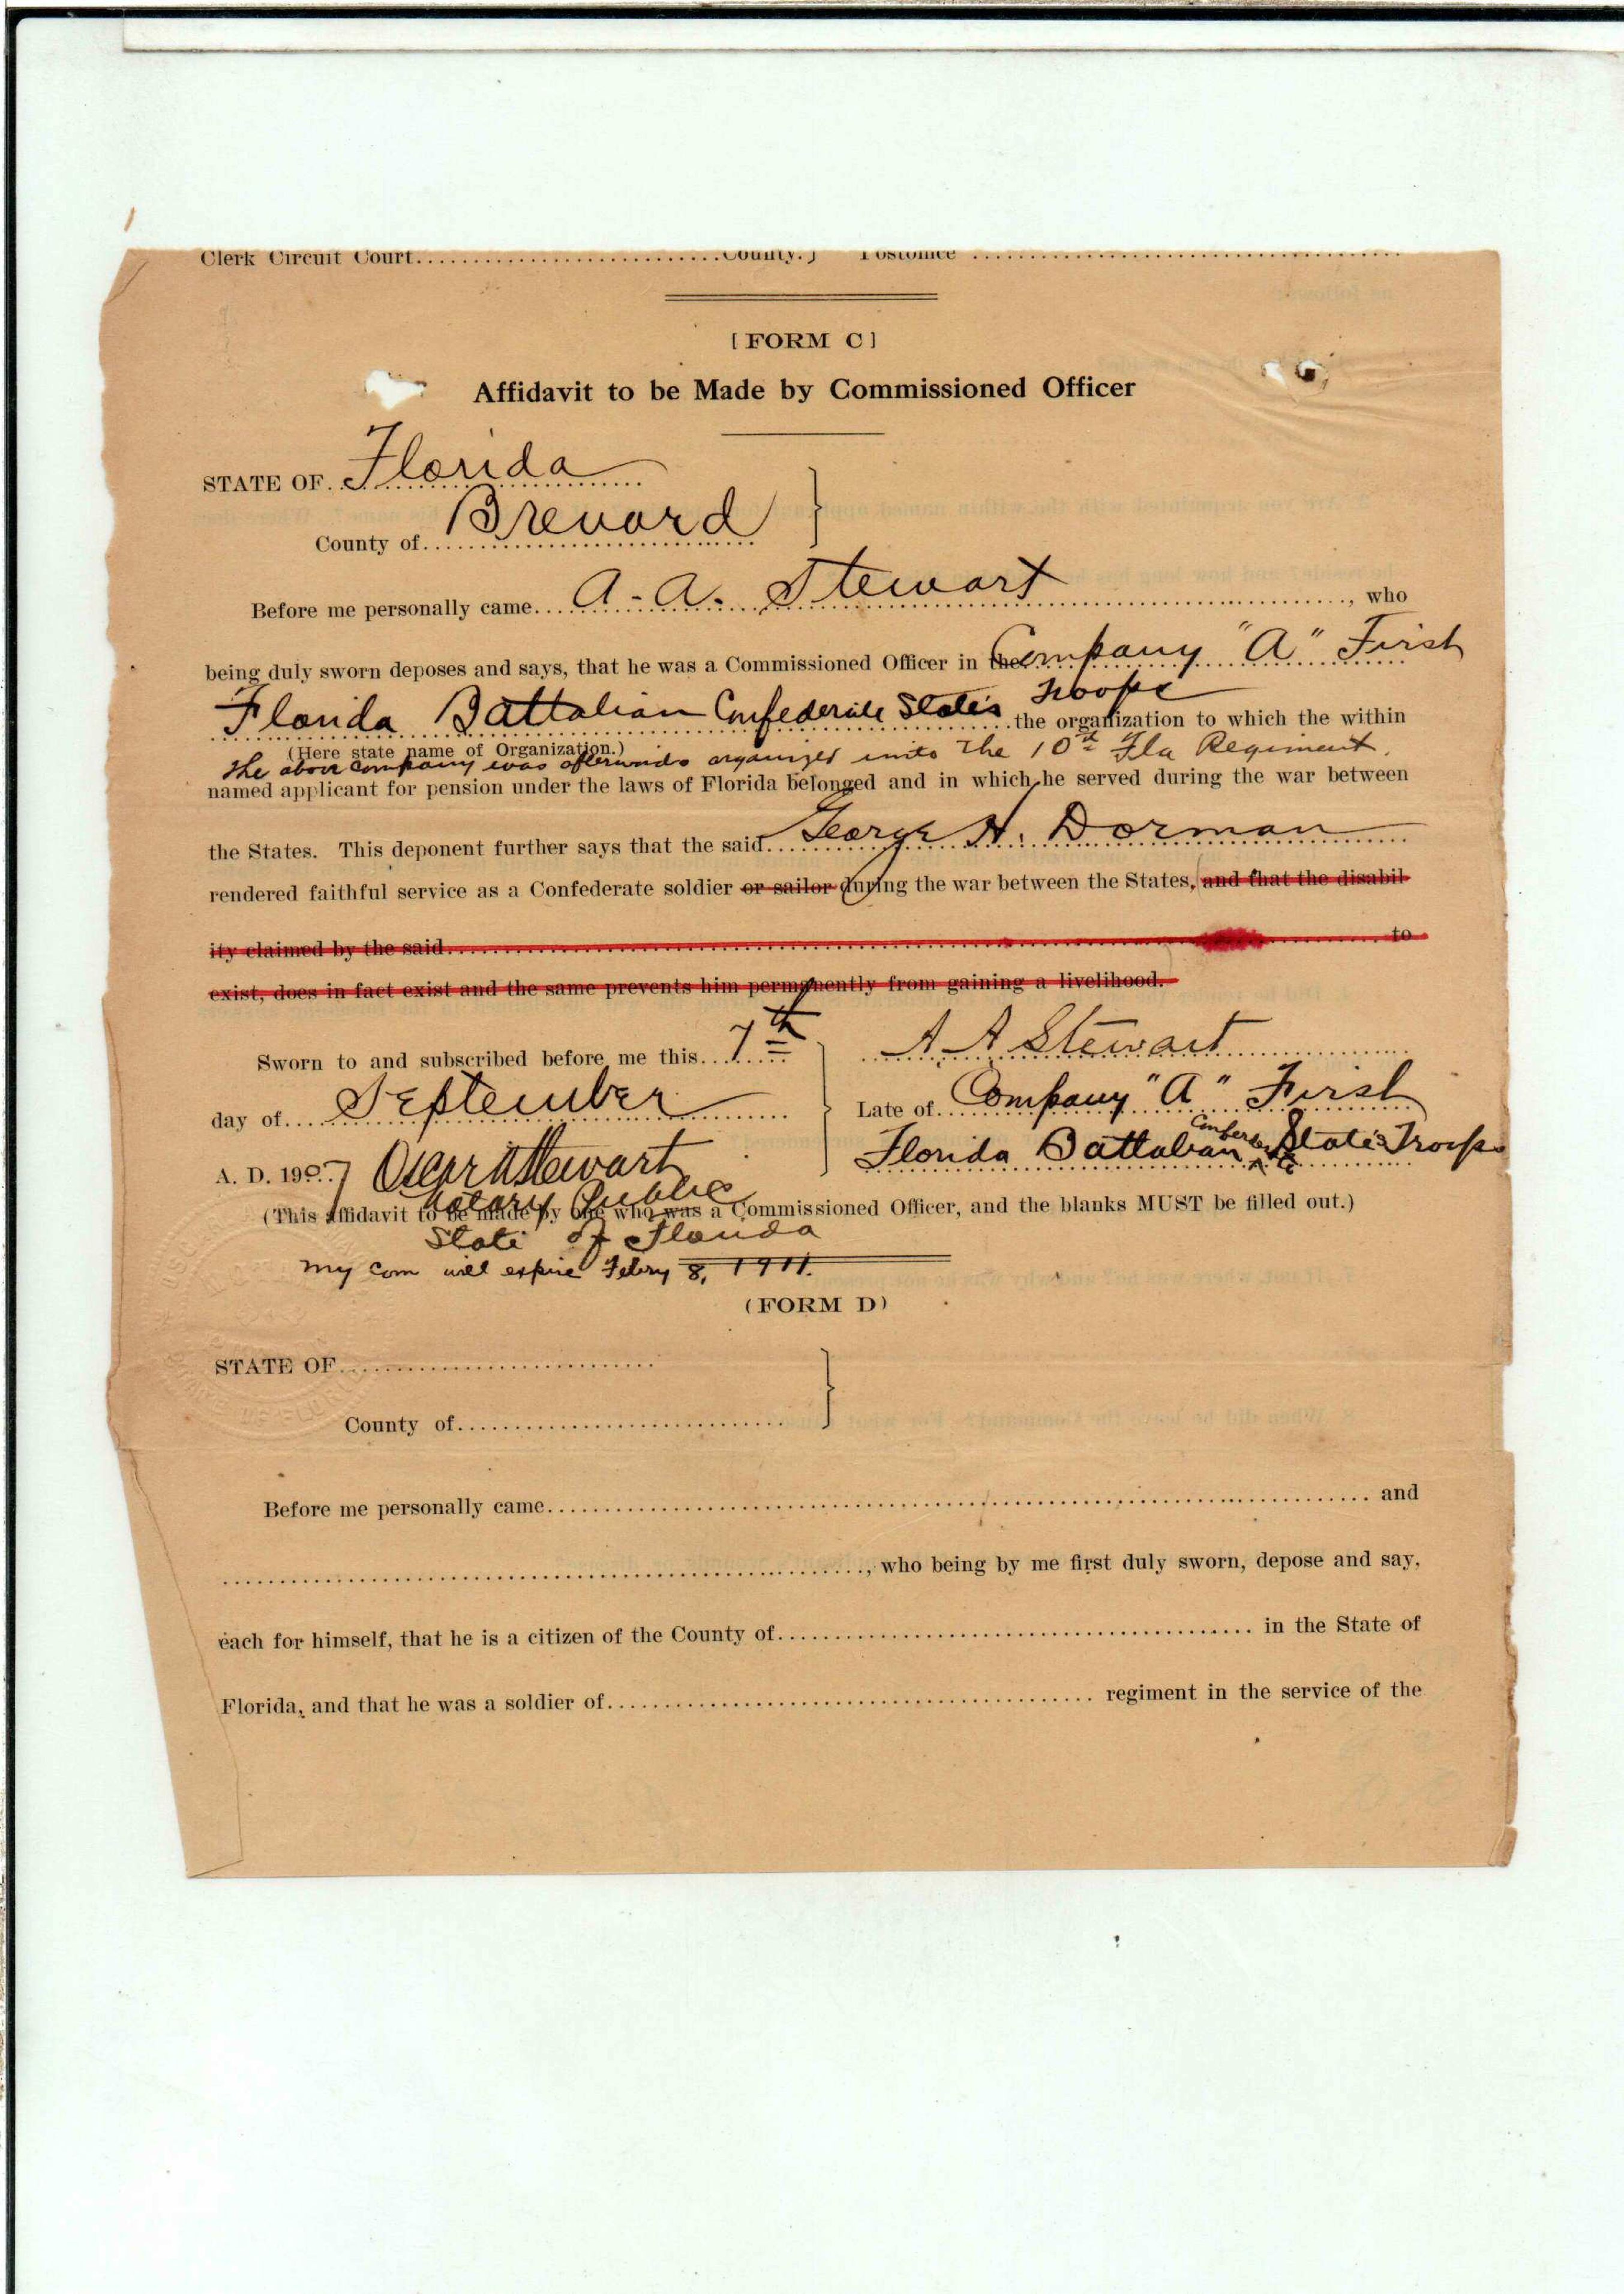 Clerk Circuit Court..............................County. } Postoffice ..............................
[FORM C]
Affidavit to be Made by Commissioned Officer
STATE OF Florida
County of Brevard }
Before me personally came A. A. Stewart, who
being duly sworn deposes and says, that he was a Commissioned Officer in the Company "A" First
Florida Battalion Confederate States Troops the organization to which the within
(Here state name of Organization.)
The above company was afterwards organized into The 10th Fla Regiment.
named applicant for pension under the laws of Florida belonged and in which he served during the war between
the States. This deponent further says that the said George H. Dorman
rendered faithful service as a Confederate soldier or sailor during the war between the States, and that the disabil-
ity claimed by the said.............................. to
exist, does in fact exist and the same prevents him permanently from gaining a livelihood.
Sworn to and subscribed before me this 7th } A A Stewart
day of September Late of Company "A" First
A. D. 1907 Oscar A Stewart Florida Battalion Confederate States Troops
Notary Public
(This affidavit to be made by one who was a Commissioned Officer, and the blanks MUST be filled out.)
State of Florida
My Com will expire Febry 8, 1911.
(FORM D)
STATE OF..............................
County of.............................. }
Before me personally came.............................. and
.............................., who being by me first duly sworn, depose and say,
each for himself, that he is a citizen of the County of.............................. in the State of
Florida, and that he was a soldier of.............................. regiment in the service of the